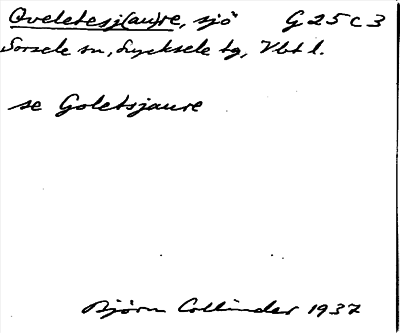 Qveletesj(au)re, sjö G 25 c 3
Sorsele sn, Lycksele tg, Vbt l.
se Goletsjaure
Björn Collinder 1937